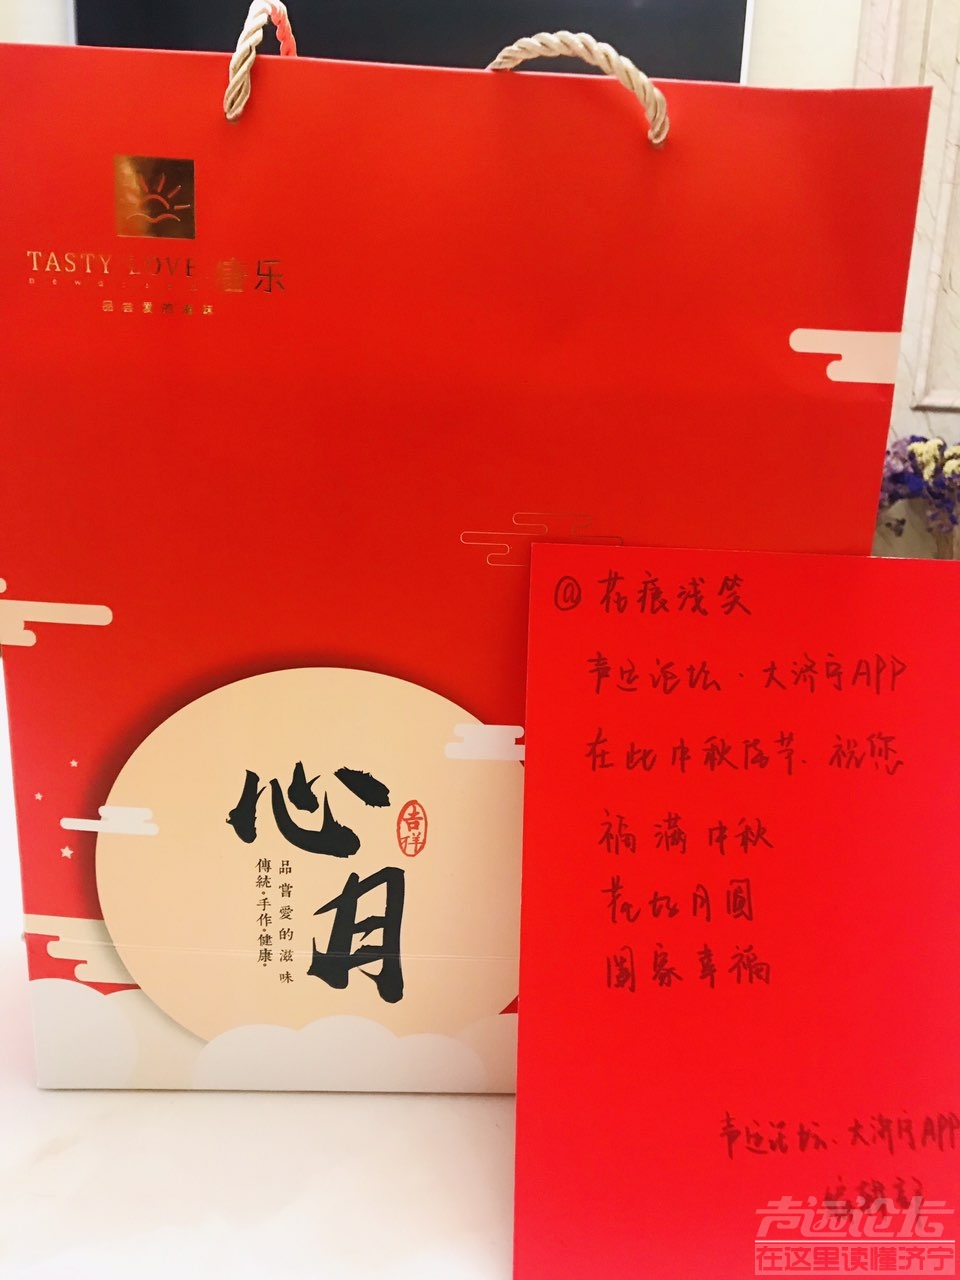 TASTY LOVE 喜乐
品尝爱的滋味
心月
吉祥
品嘗愛的滋味
傳統·手作·健康·
@花痕浅笑
声远论坛·大济宁APP
在此中秋佳节、祝您
福满中秋
花好月圆
阖家幸福
声远论坛·大济宁APP
编辑部
声远论坛
在这里读懂济宁